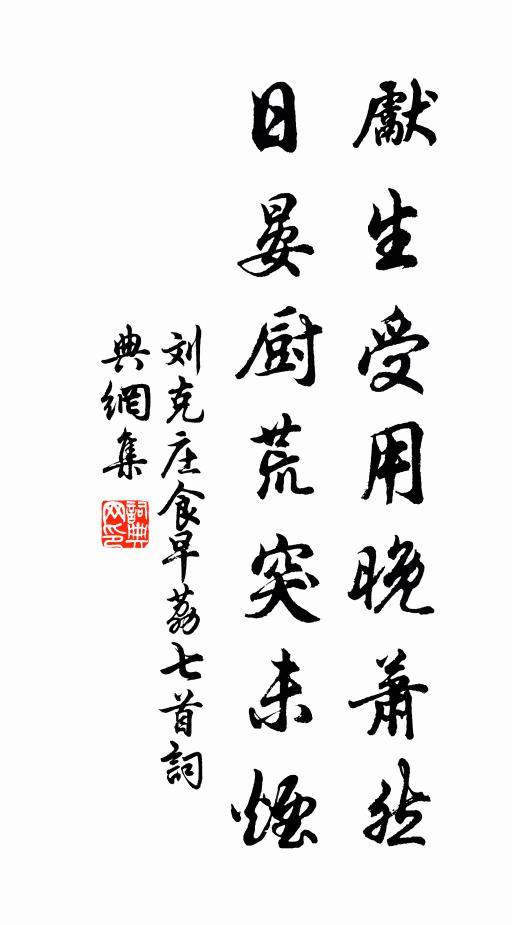 獻生受用晚蕭然
日晏厨荒突未煙
刘克庄食早荔七首詞
典網集
詞典
网印